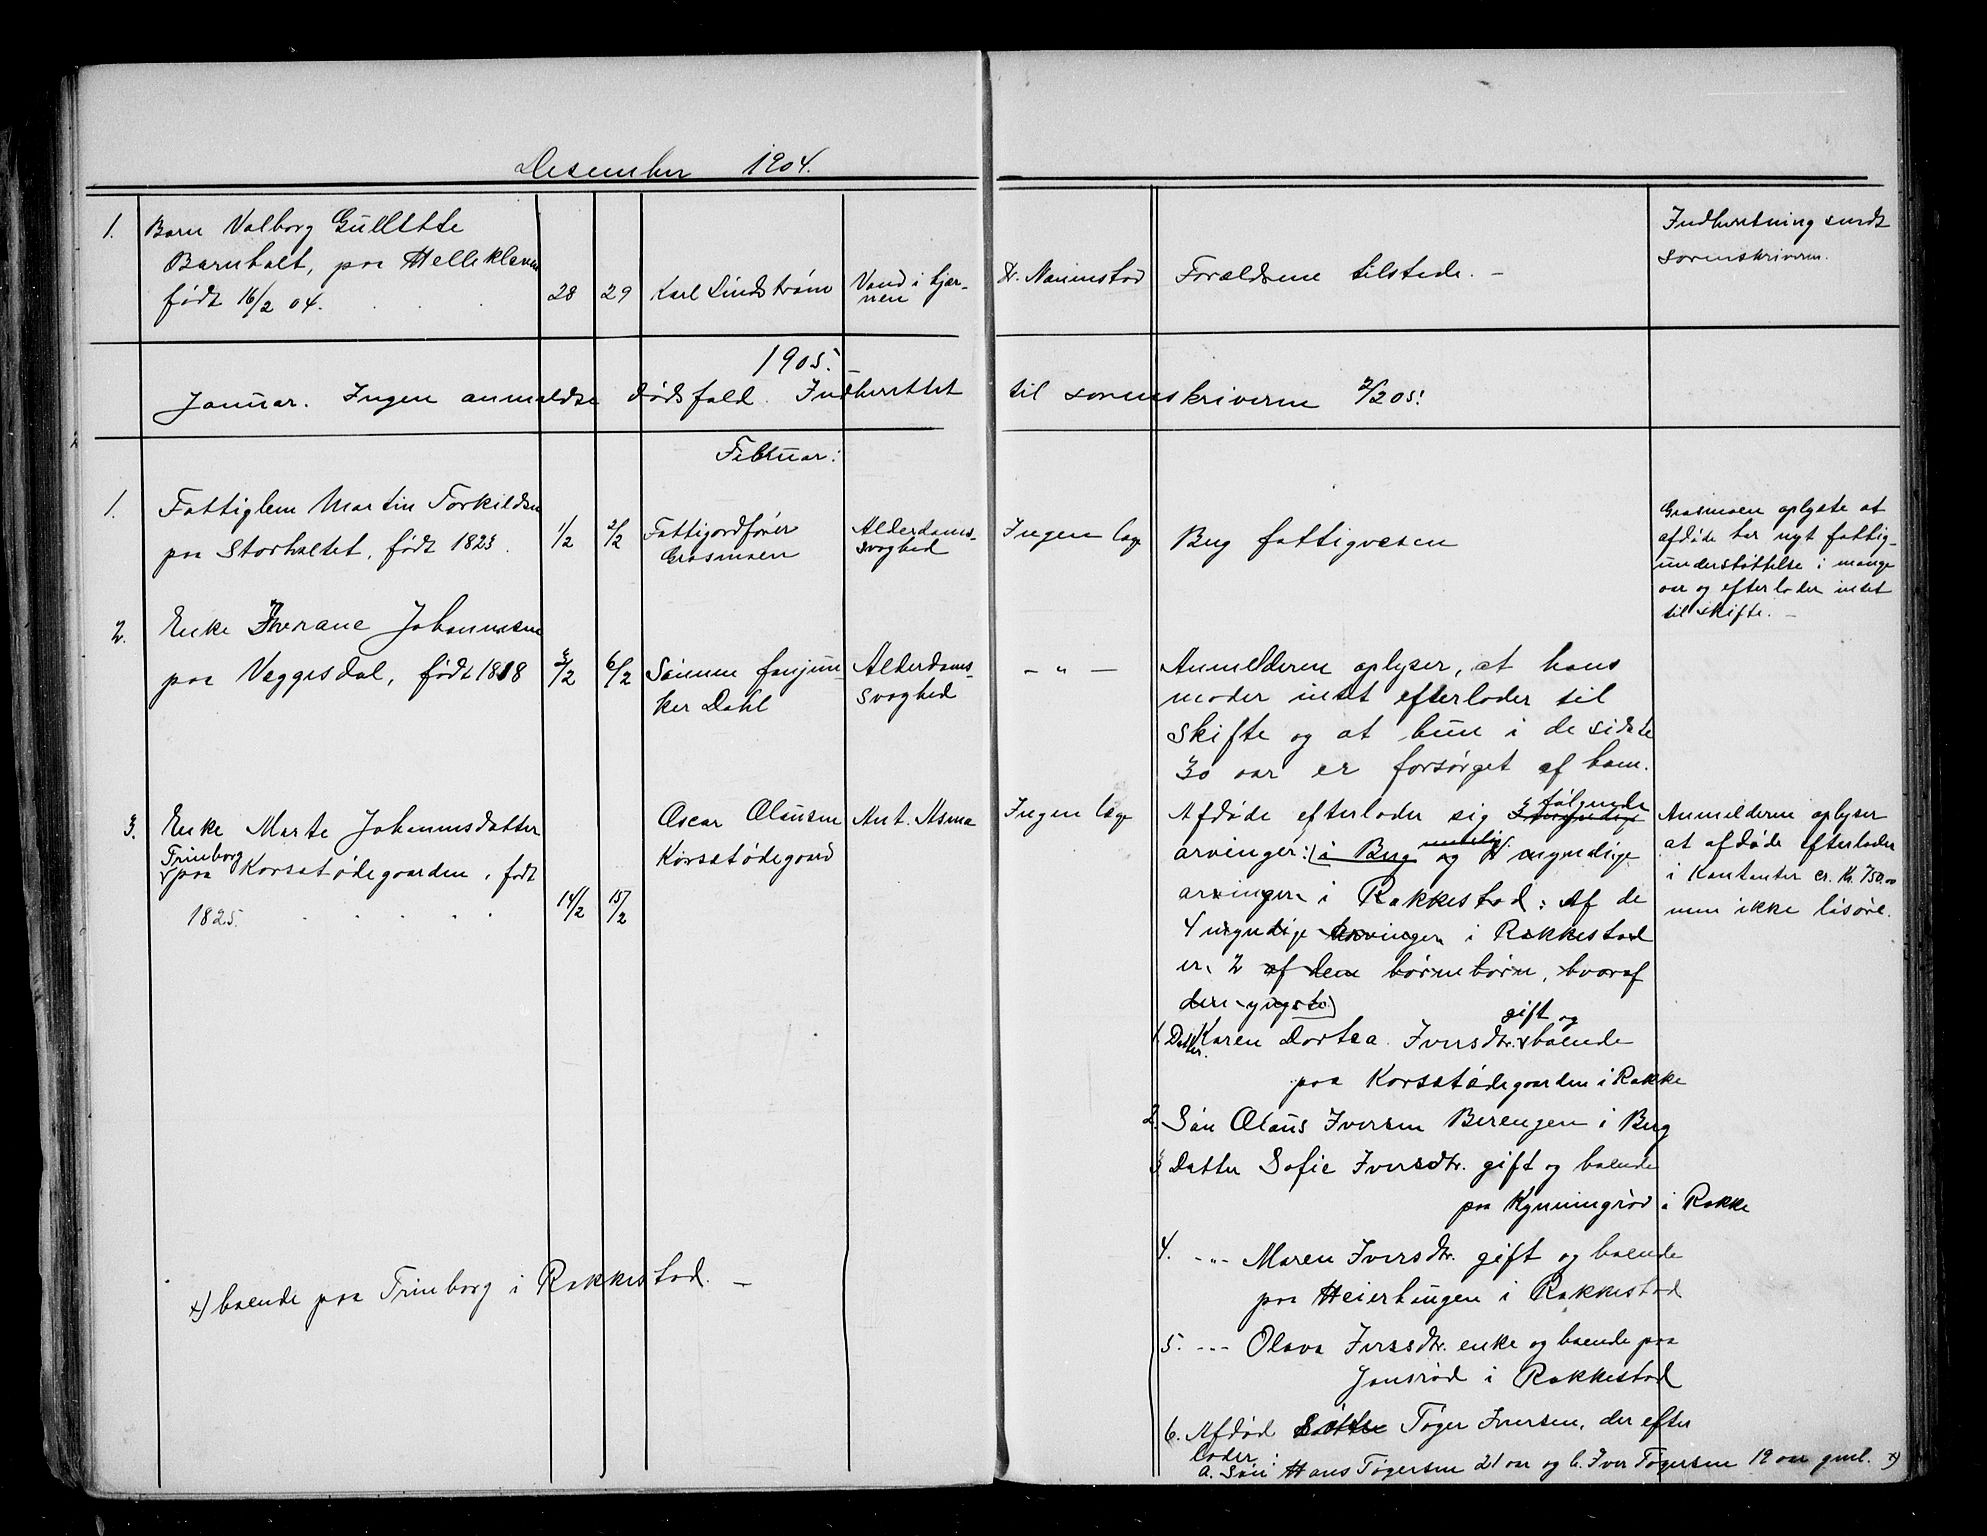 Desember 1904.
1. Barn Valborg Gullette
Barnholt, paa Hellekleven
født 16/2 04.
28
29
Karl Lindstrøm
Vand i hjær-
nen
Dr. Navnestad
Forældrene tilstede. –
Indberetning sendt
sorenskriveren.
1905.
Januar. Ingen anmeldte dødsfald. Indberettet til sorenskriveren 2/2 05!
Februar:
1. Fattiglem Martin Torkildsen
paa Storholtet, født 1823.
1/2
2/2
Fattigordfører
Grasmoen
Alderdoms-
svaghed
Ingen læge
Bug fattigvesen
Grasmoen oplyste at
afdøde har nyt fattig-
understøttelse i mange
aar og efterlader intet
til skifte. –
2. Enke Johannesen
paa Væggesdal, født 1818
3/2
6/2
Sønnen fanejun
ker Dahl
Alderdoms-
svaghed
– „ –
Anmelderen oplyser, at hans
moder intet efterlader til
skifte og at hun i de sidste
30 aar er forsørget af ham.
3. Enke Marte Johannesdatter
Trinborg
x) paa Korsetødegaarden, født
1825.
14/2
15/2
Oscar Olausen
Korsetødegaard
Ant. Asma
Ingen læge
følgende
Afdøde efterlader sig
arvinger: (i Bug og 4 myndige
arvinger i Rakkestad: Af de
4 myndige arvinger i Rakkestad
er 2 af dem børnebørn, hvoraf
den yngste)
Anmelderen oplyser
at afdøde efterlader
i Kontanter cr. Kr. 750,00
men ikke løsøre.
gift og
1. Datter. Karen Dortea Iversdtr. boende
paa Korsetødegaarden i Rakke
2. Søn Olaus Iversen Berengen i Bug
3 Datter Sofie Iversdtr. gift og boende
paa Kynningrød i Rakke
4. -„- Maren Iversdtr. gift og boende
paa Heierhaugen i Rakkestad
5. -„- Olava Iversdtr. enke og boende paa
Jonsrød i Rakkestad
6. Afdød Tøger Iversen, der efter
lader:
a. Søn Hans Tøgersen 21 aar og b. Iver Tøgersen 19 aar gml. x)
x) boende paa Trinborg i Rakkestad. –